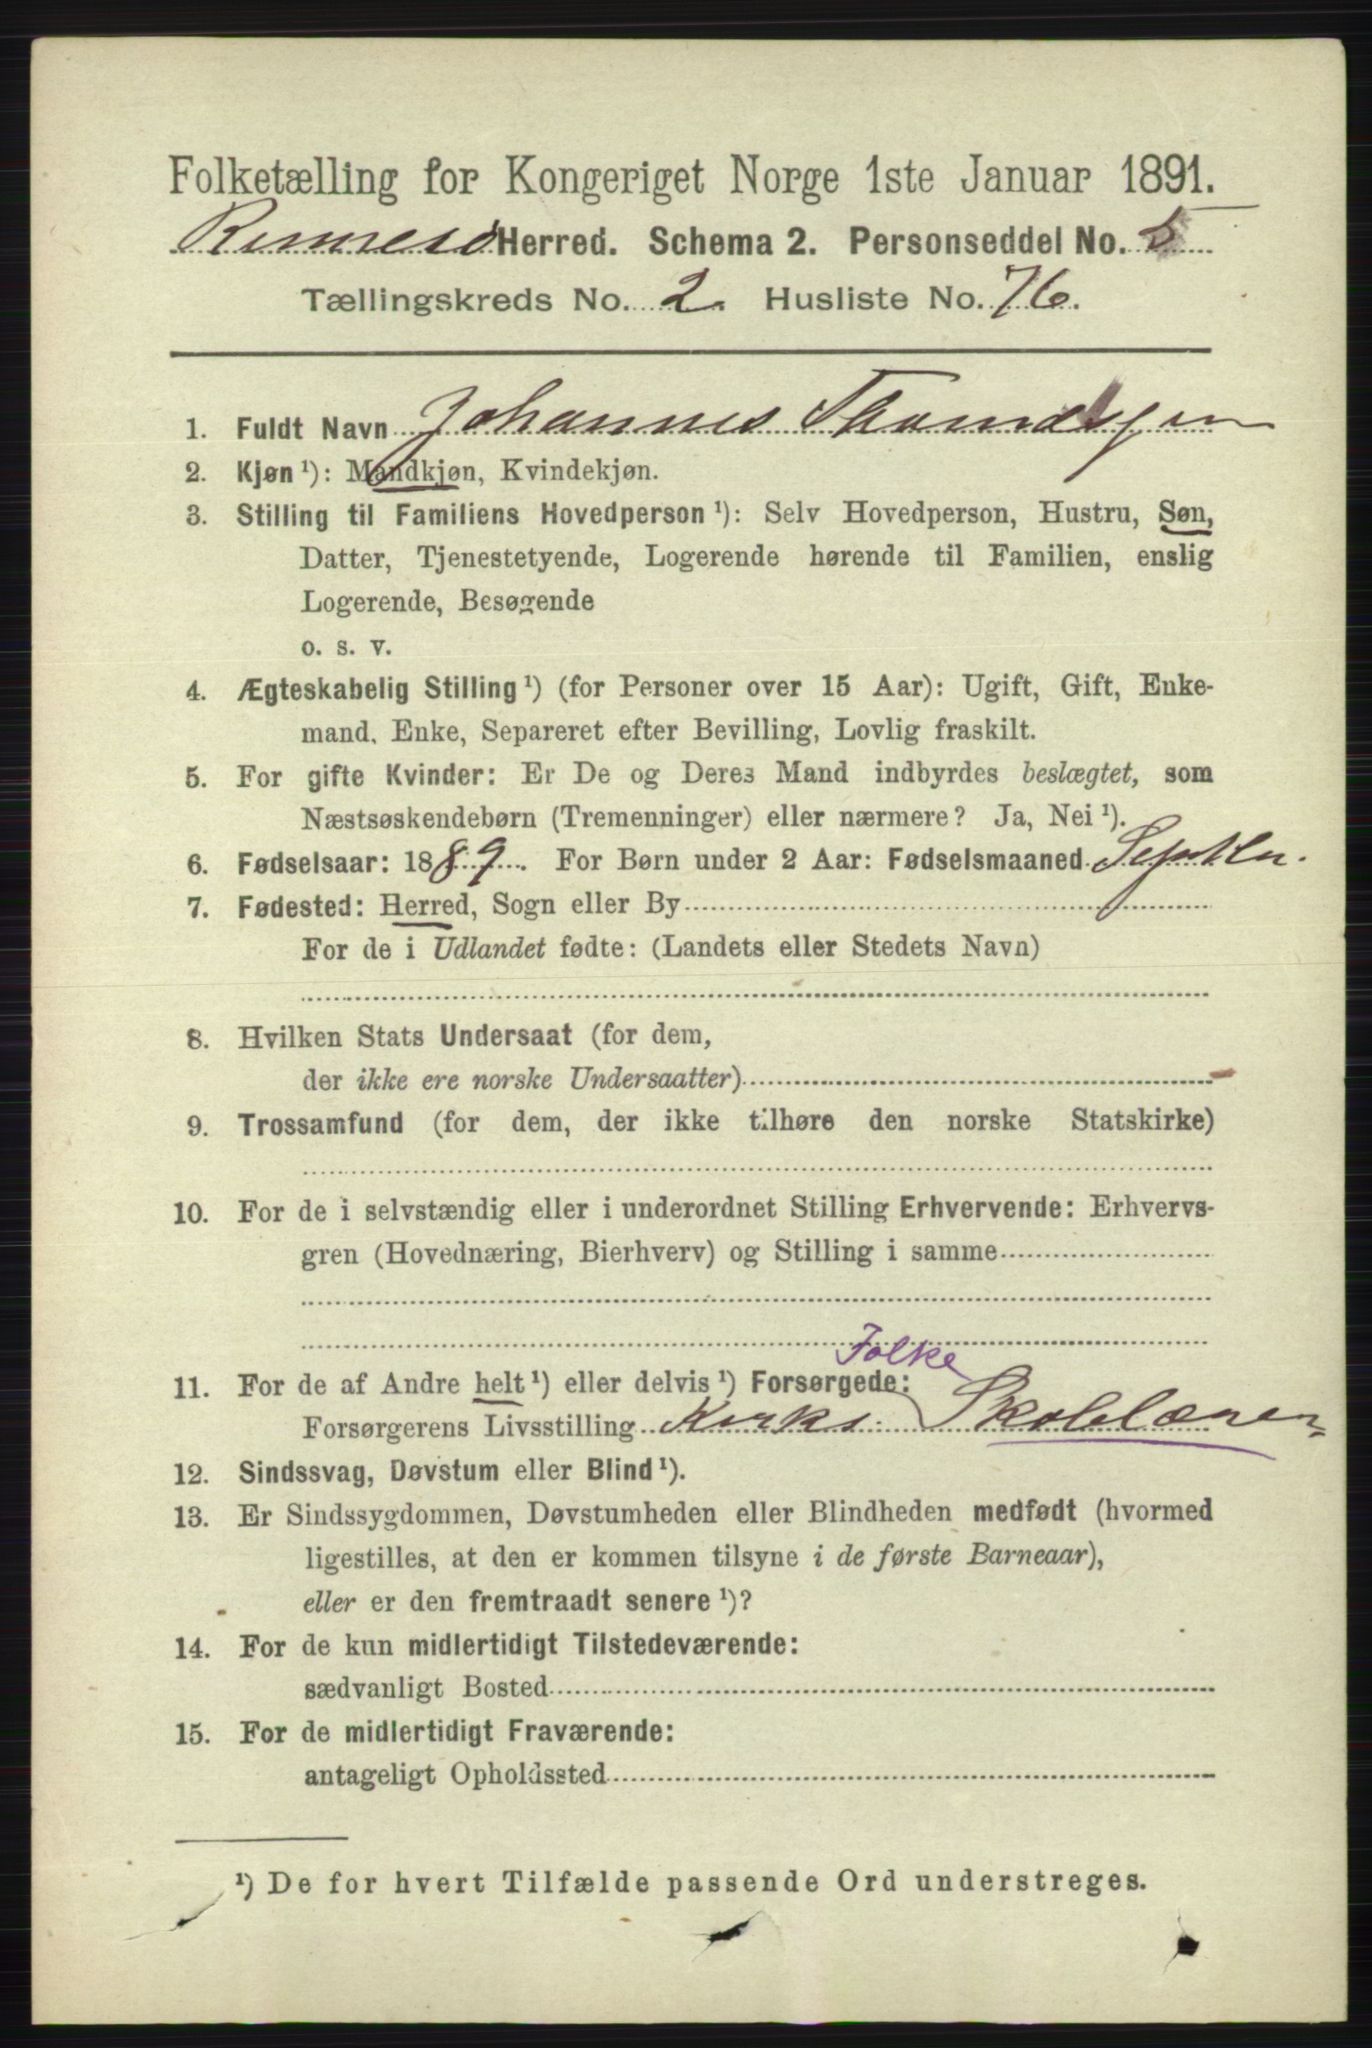 Folketælling for Kongeriget Norge 1ste Januar 1891.
Rennesø Herred. Schema 2. Personseddel No. 5
Tællingskreds No. 2. Husliste No. 76.
1. Fuldt Navn Johannes Thomassen
2. Kjøn ¹): Mandkjøn, Kvindekjøn.
3. Stilling til Familiens Hovedperson ¹): Selv Hovedperson, Hustru, Søn,
Datter, Tjenestetyende, Logerende hørende til Familien, enslig
Logerende, Besøgende
o. s. v.
4. Ægteskabelig Stilling ¹) (for Personer over 15 Aar): Ugift, Gift, Enke-
mand, Enke, Separeret efter Bevilling, Lovlig fraskilt.
5. For gifte Kvinder: Er De og Deres Mand indbyrdes beslægtet, som
Næstsøskendebørn (Tremenninger) eller nærmere? Ja, Nei ¹).
6. Fødselsaar: 1889. For Børn under 2 Aar: Fødselsmaaned Septbr.
7. Fødested: Herred, Sogn eller By
For de i Udlandet fødte: (Landets eller Stedets Navn)
8. Hvilken Stats Undersaat (for dem,
der ikke ere norske Undersaatter)
9. Trossamfund (for dem, der ikke tilhøre den norske Statskirke)
10. For de i selvstændig eller i underordnet Stilling Erhvervende: Erhvervs-
gren (Hovednæring, Bierhverv) og Stilling i samme
Folke
11. For de af Andre helt ¹) eller delvis ¹) Forsørgede:
Forsørgerens Livsstilling Kirks. Skolelærer
12. Sindssvag, Døvstum eller Blind ¹).
13. Er Sindssygdommen, Døvstumheden eller Blindheden medfødt (hvormed
ligestilles, at den er kommen tilsyne i de første Barneaar),
eller er den fremtraadt senere ¹)?
14. For de kun midlertidigt Tilstedeværende:
sædvanligt Bosted
15. For de midlertidigt Fraværende:
antageligt Opholdssted
¹) De for hvert Tilfælde passende Ord understreges.